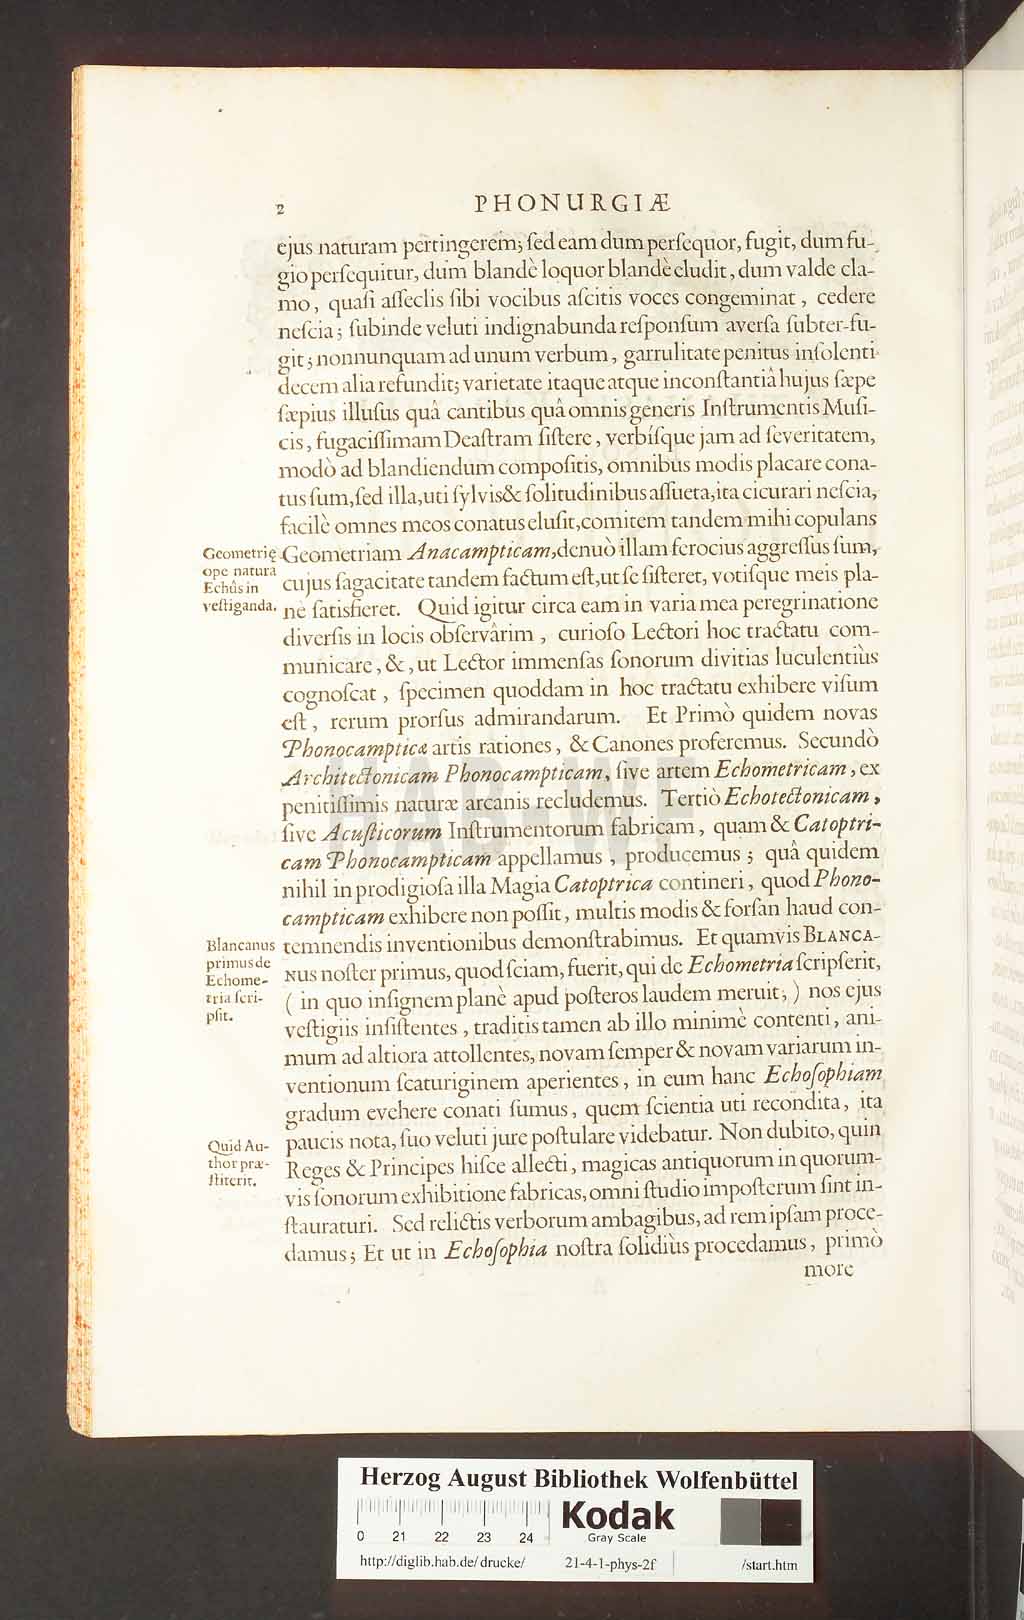 2 PHONURGIÆ
ejus naturam pertingerem; ſed eam dum perſequor, fugit, dum fu-
gio perſequitur, dum blandè loquor blandè eludit, dum valde cla-
mo, quaſi aſſeclis ſibi vocibus aſcitis voces congeminat, cedere
neſcia; ſubinde veluti indignabunda reſponſum averſa ſubter-fu-
git; nonnunquam ad unum verbum, garrulitate penitus inſolenti
decem alia refundit; varietate itaque atque inconſtantiâ hujus ſæpe
ſæpius illuſus quâ cantibus quâ omnis generis Inſtrumentis Muſi-
cis, fugaciſſimam Deaſtram ſiſtere, verbíſque jam ad ſeveritatem,
modò ad blandiendum compoſitis, omnibus modis placare cona-
tus ſum, ſed illa, uti ſylvis & ſolitudinibus aſſueta, ita cicurari neſcia,
facilè omnes meos conatus eluſit, comitem tandem mihi copulans
Geometriam Anacampticam, denuò illam ferocius aggreſſus ſum,
cujus ſagacitate tandem factum eſt, ut ſe ſiſteret, votiſque meis pla-
nè ſatisfieret. Quid igitur circa eam in varia mea peregrinatione
diverſis in locis obſervârim, curioſo Lectori hoc tractatu com-
municare, &, ut Lector immenſas ſonorum divitias luculentiùs
cognoſcat, ſpecimen quoddam in hoc tractatu exhibere viſum
eſt, rerum prorſus admirandarum. Et Primò quidem novas
Phonocampticæ artis rationes, & Canones proferemus. Secundò
Architectonicam Phonocampticam, ſive artem Echometricam, ex
penitiſſimis naturæ arcanis recludemus. Tertiò Echotectonicam,
ſive Acuſticorum Inſtrumentorum fabricam, quam & Catoptri-
cam Phonocampticam appellamus, producemus; quâ quidem
nihil in prodigioſa illa Magia Catoptrica contineri, quod Phono-
campticam exhibere non poſſit, multis modis & forſan haud con-
temnendis inventionibus demonſtrabimus. Et quamvis BLANCA-
NUS noſter primus, quod ſciam, fuerit, qui de Echometria ſcripſerit,
( in quo inſignem planè apud poſteros laudem meruit; ) nos ejus
veſtigiis inſiſtentes, traditis tamen ab illo minimè contenti, ani-
mum ad altiora attollentes, novam ſemper & novam variarum in-
ventionum ſcaturiginem aperientes, in eum hanc Echoſophiam
gradum evehere conati ſumus, quem ſcientia uti recondita, ita
paucis nota, ſuo veluti jure poſtulare videbatur. Non dubito, quin
Reges & Principes hiſce allecti, magicas antiquorum in quorum-
vis ſonorum exhibitione fabricas, omni ſtudio impoſterum ſint in-
ſtauraturi. Sed relictis verborum ambagibus, ad rem ipſam proce-
damus; Et ut in Echoſophia noſtra ſolidiùs procedamus, primò
more
Geometrię
ope natura
Echûs in
veſtiganda.
Blancanus
primus de
Echome-
tria ſcri-
pſit.
Quid Au-
thor præ-
ſtiterit.
HAB-WF
Herzog August Bibliothek Wolfenbüttel
Kodak
Gray Scale
0 21 22 23 24
http://diglib.hab.de/drucke/ 21-4-1-phys-2f /start.htm